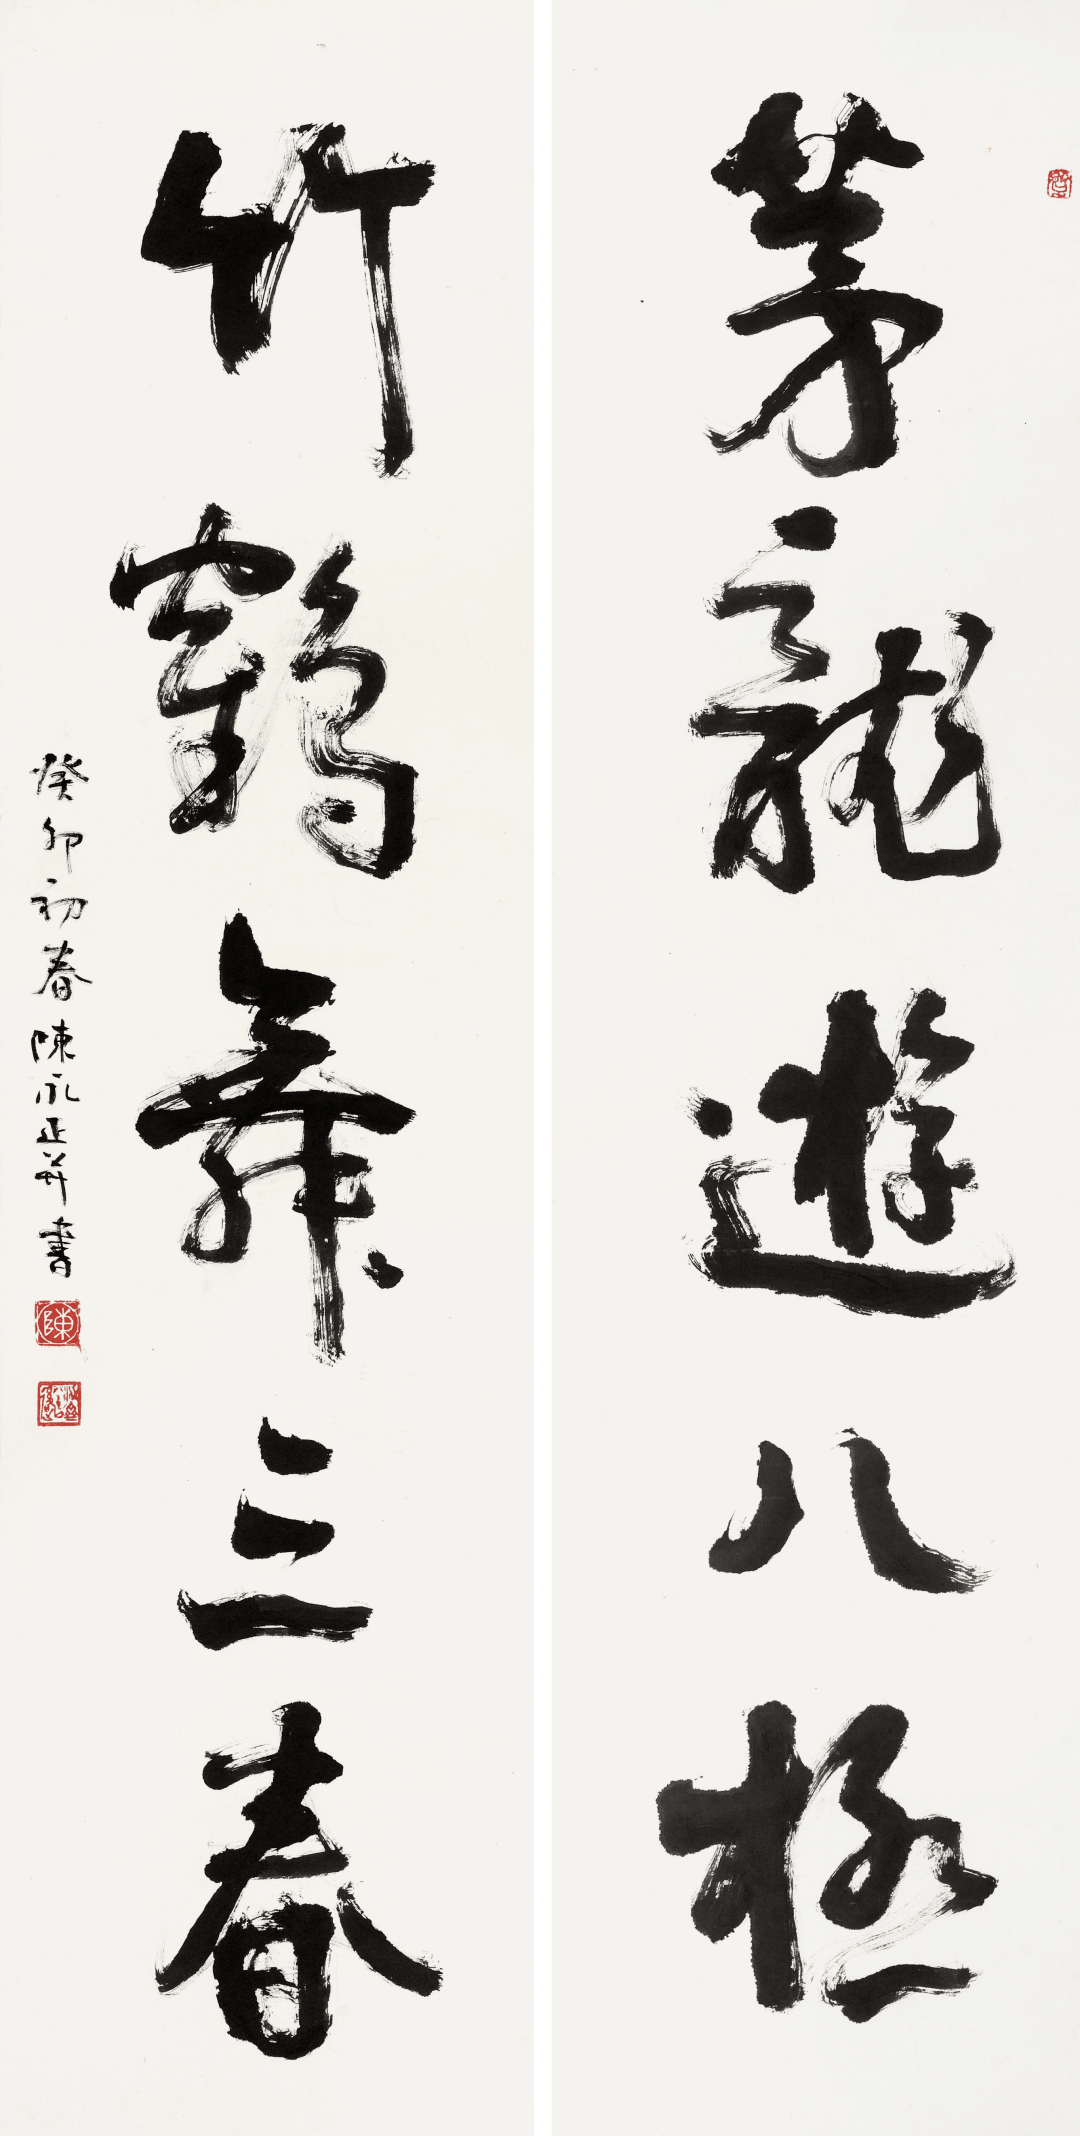 茅龍遊八極
竹鶴舞三春
癸卯初春陳永正并書
陳